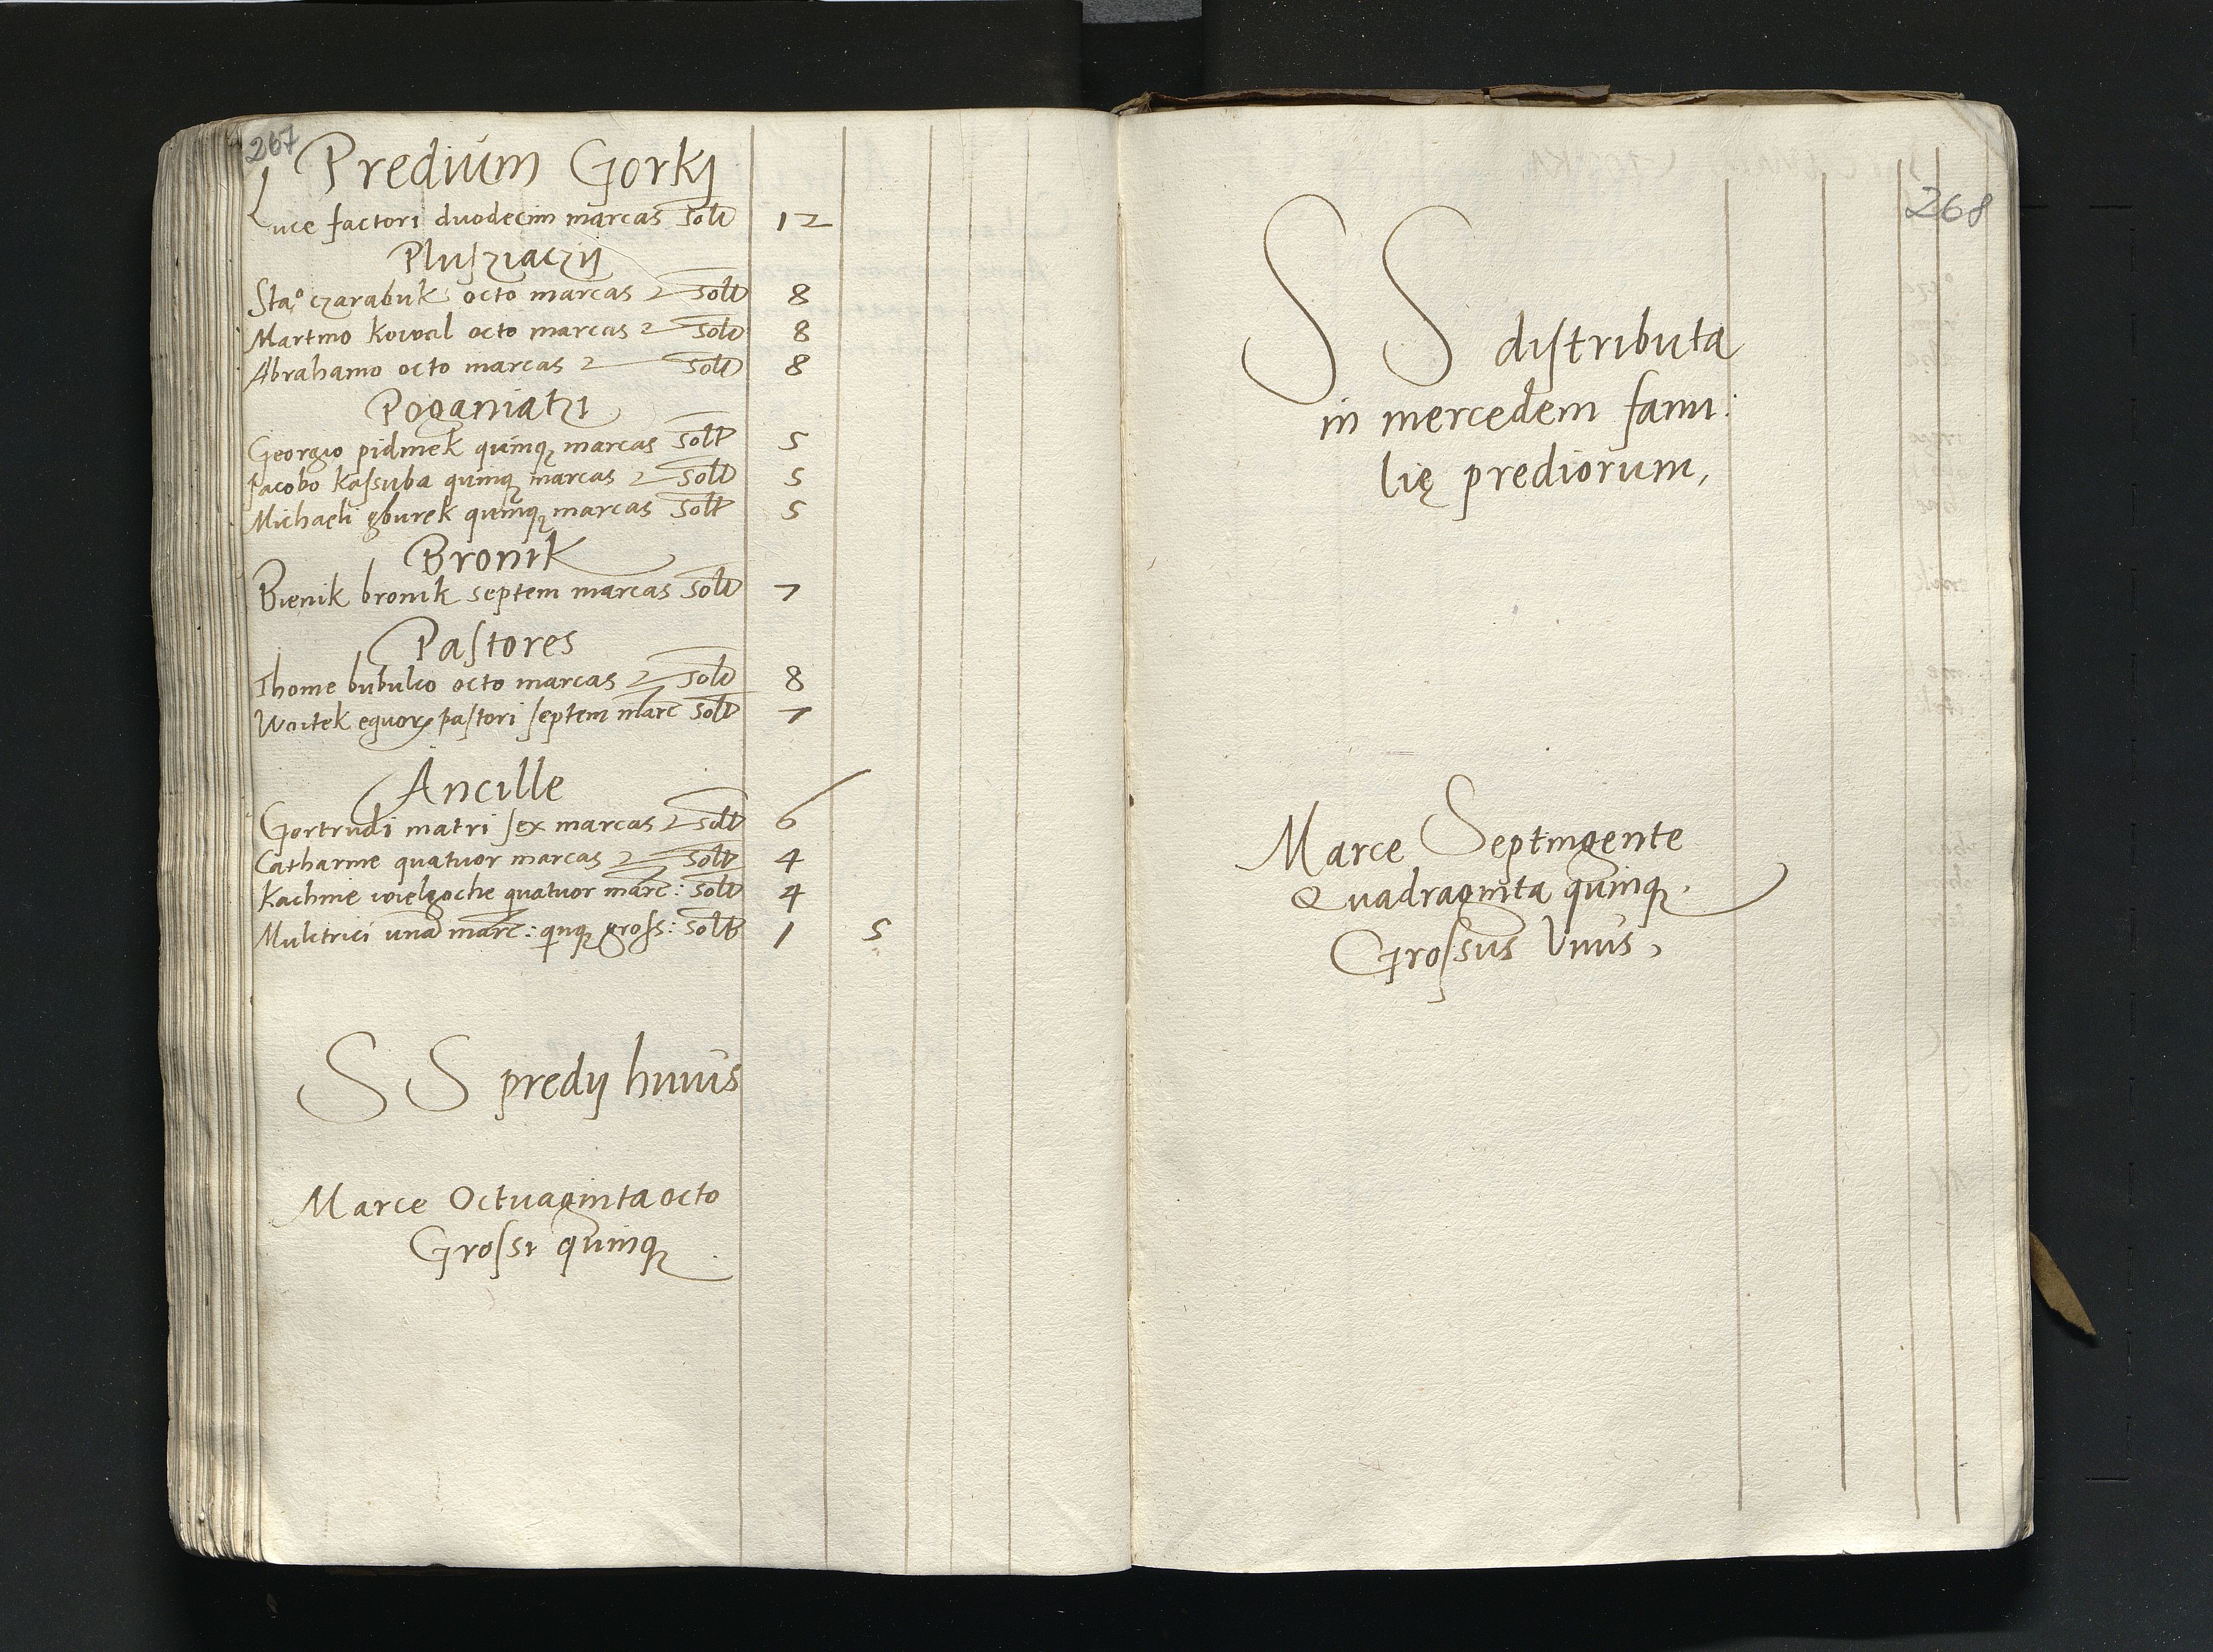 267
Predium Gorkj
Luce factori duodecim marcas solt 12
Plusziaczy
Stao czarabuk octo marcas solt 8
Martino kowal octo marcas solt 8
Abrahamo octo marcas solt 8
Poganiatzi
Georgio pidinek quinq marcas solt 5
Jacobo kassuba quinq marcas solt 5
Michaeli gburek quinq marcas solt 5
Bronik
Bienik bronik septem marcas solt 7
Pastores
Thome bubulco octo marcas solt 8
Woitek equor pastori septem marc solt 7
Ancille
Gertrudi matri sex marcas solt 6
Catharine quatuor marcas solt 4
Kachnie wielgoche quatuor marc: solt 4
Mulctrici una marc: qinq gross: solt 1 5
SS predij huius
Marce Octuaginta octo
Grossi quinq
268
SS distributa
in mercedem fami:
lię prediorum,
Marce Septingente
Quadraginta quinq.
Grossus Unus,